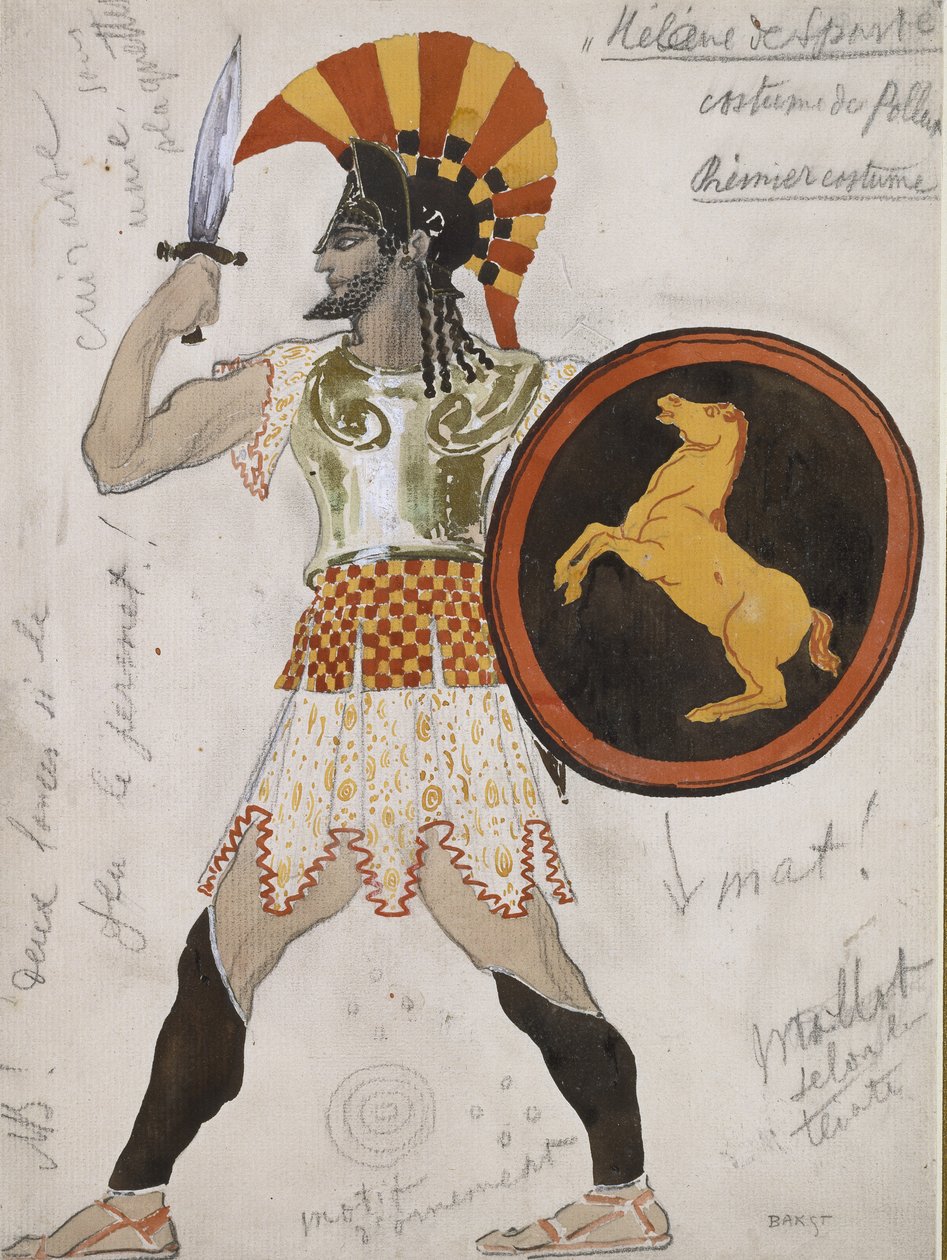 „Hélène de Sparte"
costume de Pollux
Prèmier costume
cuirasse
NB! Deux lances si le
jeu le permet!
mat!
maillot
selon le
motif
d'ornement
BAKST